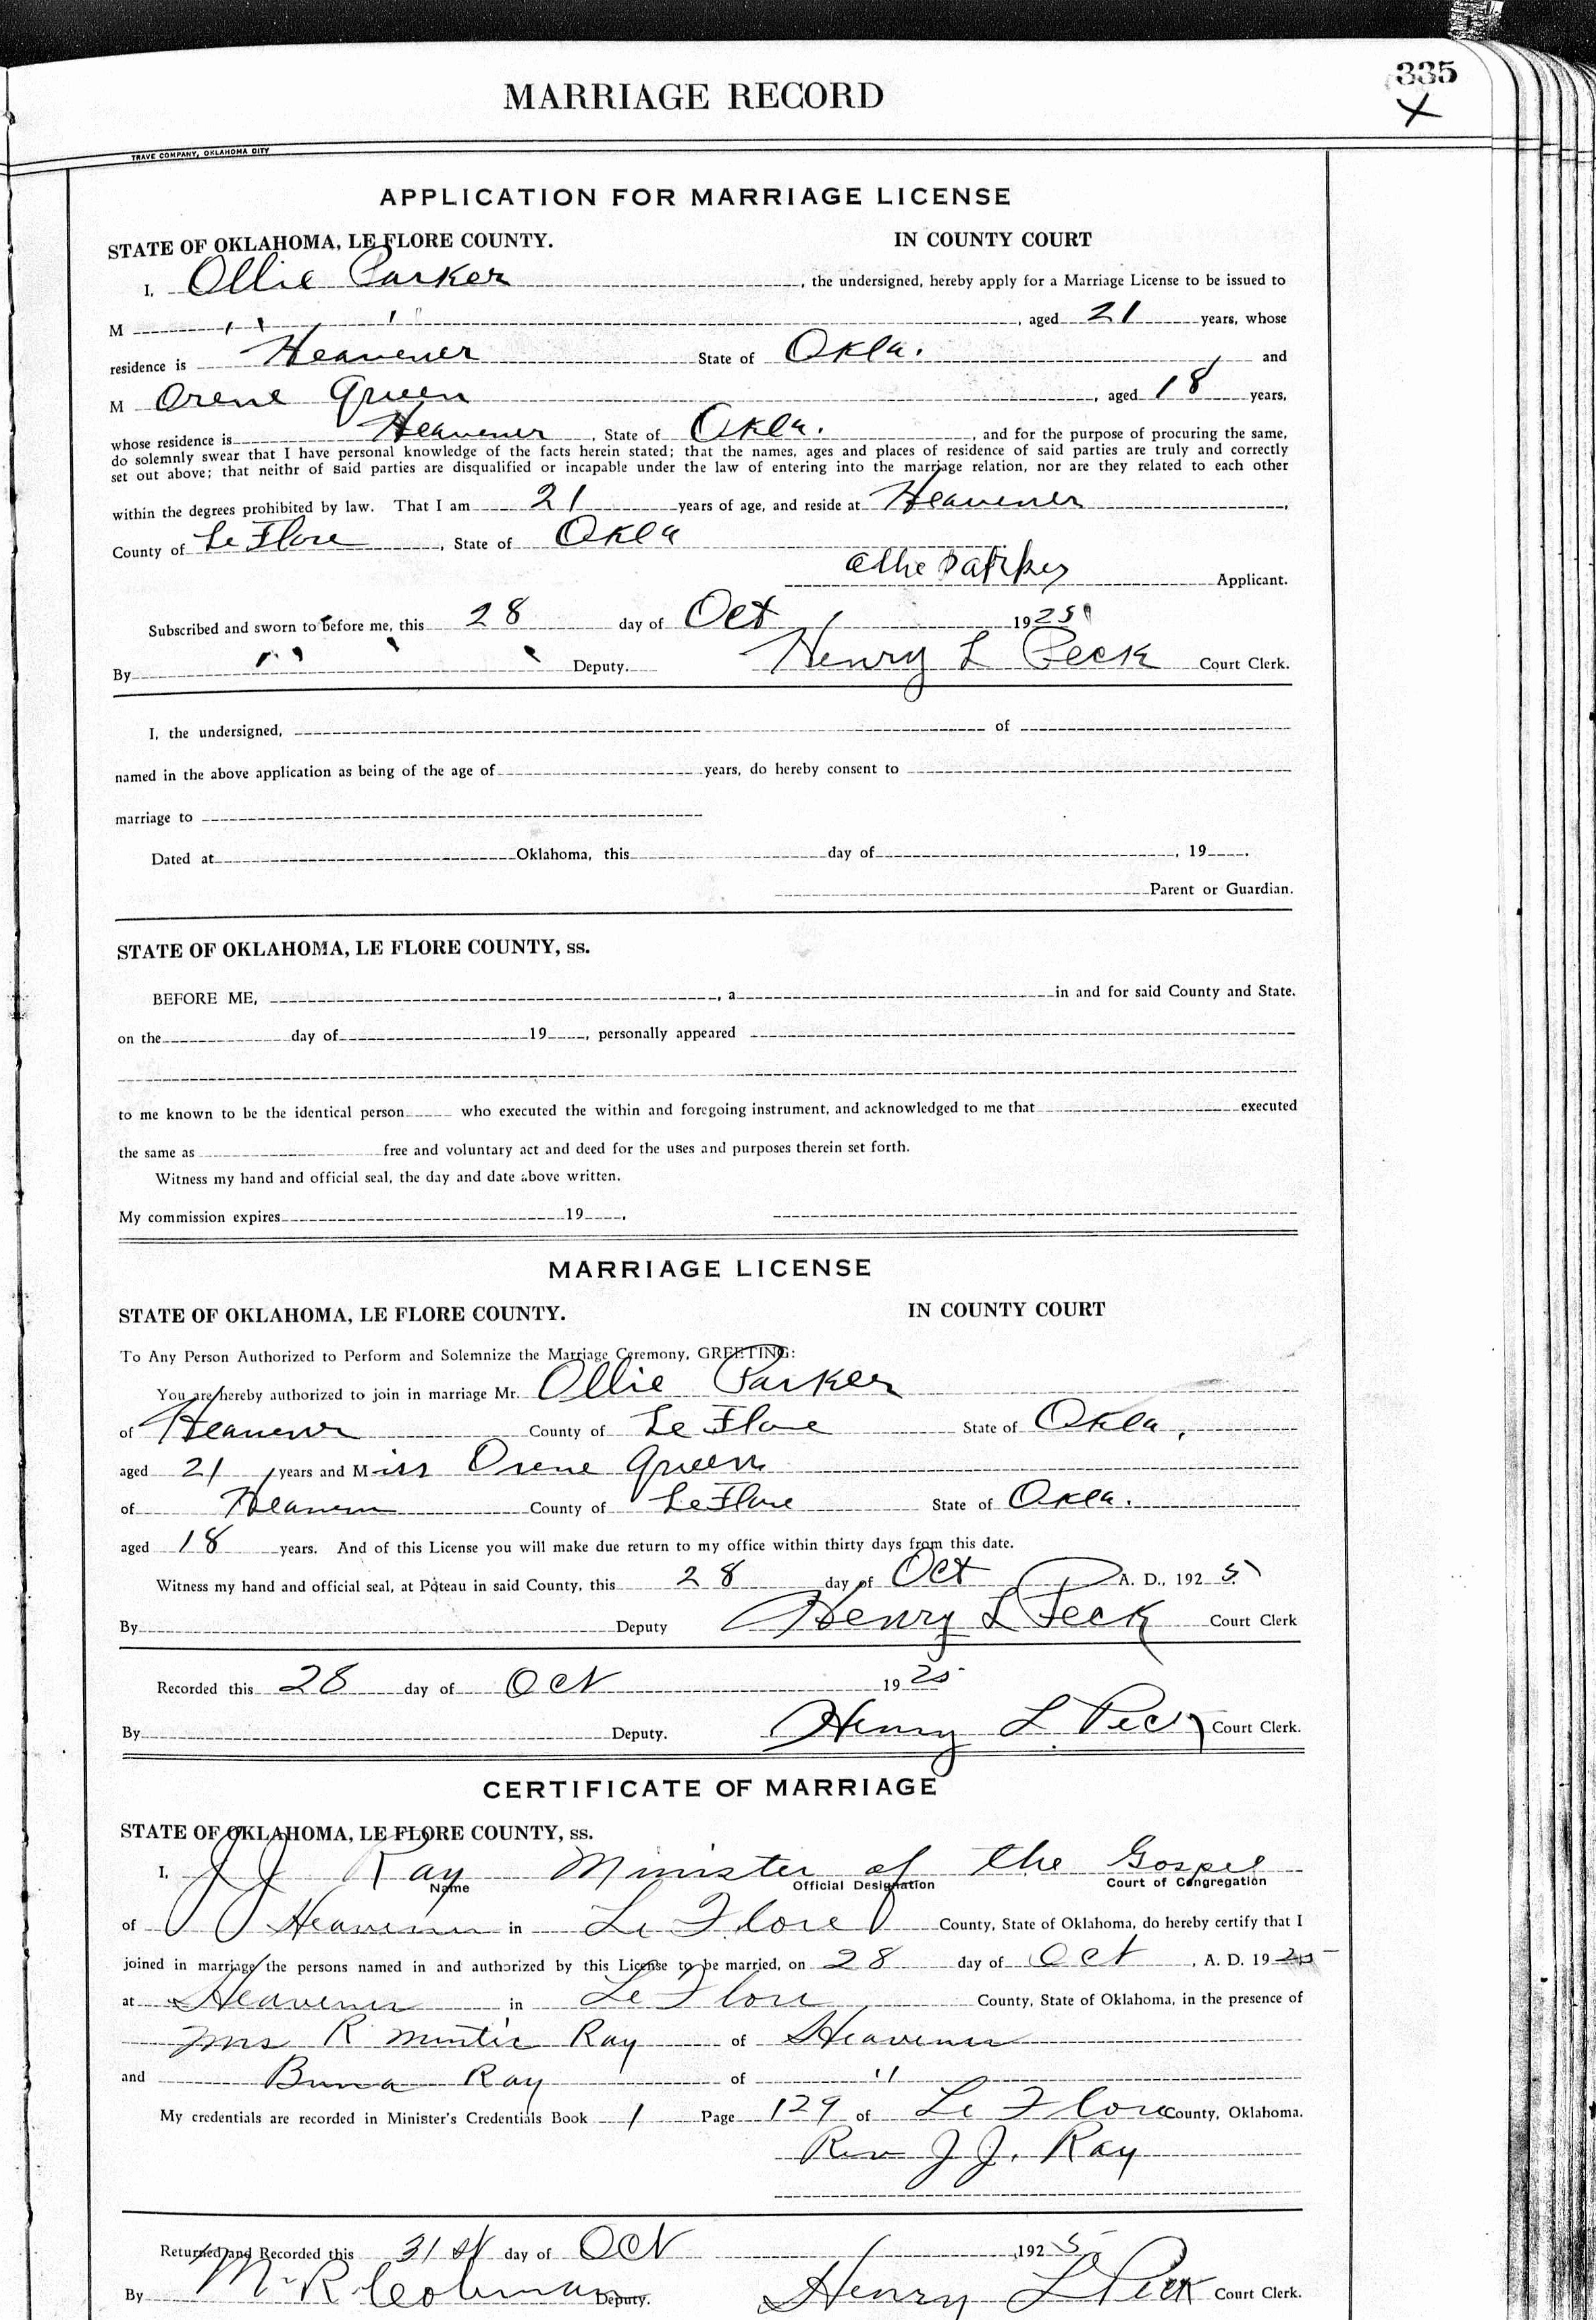 335
X
MARRIAGE RECORD
TRAVE COMPANY, OKLAHOMA CITY
APPLICATION FOR MARRIAGE LICENSE
STATE OF OKLAHOMA, LE FLORE COUNTY. IN COUNTY COURT
I, Ollie Parker, the undersigned, hereby apply for a Marriage License to be issued to
M " " , aged 21 years, whose
residence is Heavener State of Okla. and
M Orene Green, aged 18 years,
whose residence is Heavener, State of Okla., and for the purpose of procuring the same,
do solemnly swear that I have personal knowledge of the facts herein stated; that the names, ages and places of residence of said parties are truly and correctly
set out above; that neithr of said parties are disqualified or incapable under the law of entering into the marriage relation, nor are they related to each other
within the degrees prohibited by law. That I am 21 years of age, and reside at Heavener,
County of Le Flore, State of Okla
Ollie Parker Applicant.
Subscribed and sworn to before me, this 28 day of Oct 1925
By " " Deputy. Henry L Peck Court Clerk.
I, the undersigned, of
named in the above application as being of the age of years, do hereby consent to
marriage to
Dated at Oklahoma, this day of , 19 .
Parent or Guardian.
STATE OF OKLAHOMA, LE FLORE COUNTY, ss.
BEFORE ME, , a in and for said County and State.
on the day of 19 , personally appeared
to me known to be the identical person who executed the within and foregoing instrument, and acknowledged to me that executed
the same as free and voluntary act and deed for the uses and purposes therein set forth.
Witness my hand and official seal, the day and date above written.
My commission expires 19 .
MARRIAGE LICENSE
STATE OF OKLAHOMA, LE FLORE COUNTY. IN COUNTY COURT
To Any Person Authorized to Perform and Solemnize the Marriage Ceremony, GREETING:
You are hereby authorized to join in marriage Mr. Ollie Parker
of Heavener County of Le Flore State of Okla.
aged 21 years and Miss Orene Green
of Heavener County of Le Flore State of Okla.
aged 18 years. And of this License you will make due return to my office within thirty days from this date.
Witness my hand and official seal, at Poteau in said County, this 28 day of Oct A. D., 1925
By Deputy Henry L Peck Court Clerk
Recorded this 28 day of Oct 1925
By Deputy. Henry L Peck Court Clerk.
CERTIFICATE OF MARRIAGE
STATE OF OKLAHOMA, LE FLORE COUNTY, ss.
I, J J Ray Minister of the Gospel
Name Official Designation Court of Congregation
of Heavener in Le Flore County, State of Oklahoma, do hereby certify that I
joined in marriage the persons named in and authorized by this License to be married, on 28 day of Oct, A. D. 1925
at Heavener in Le Flore County, State of Oklahoma, in the presence of
Mrs R Ray of Heavener
and Ray of "
My credentials are recorded in Minister's Credentials Book 1 Page 129 of Le Flore County, Oklahoma.
Rev J. J. Ray
Returned and Recorded this 31st day of Oct 1925
By M. R. Deputy. Henry L Peck Court Clerk.